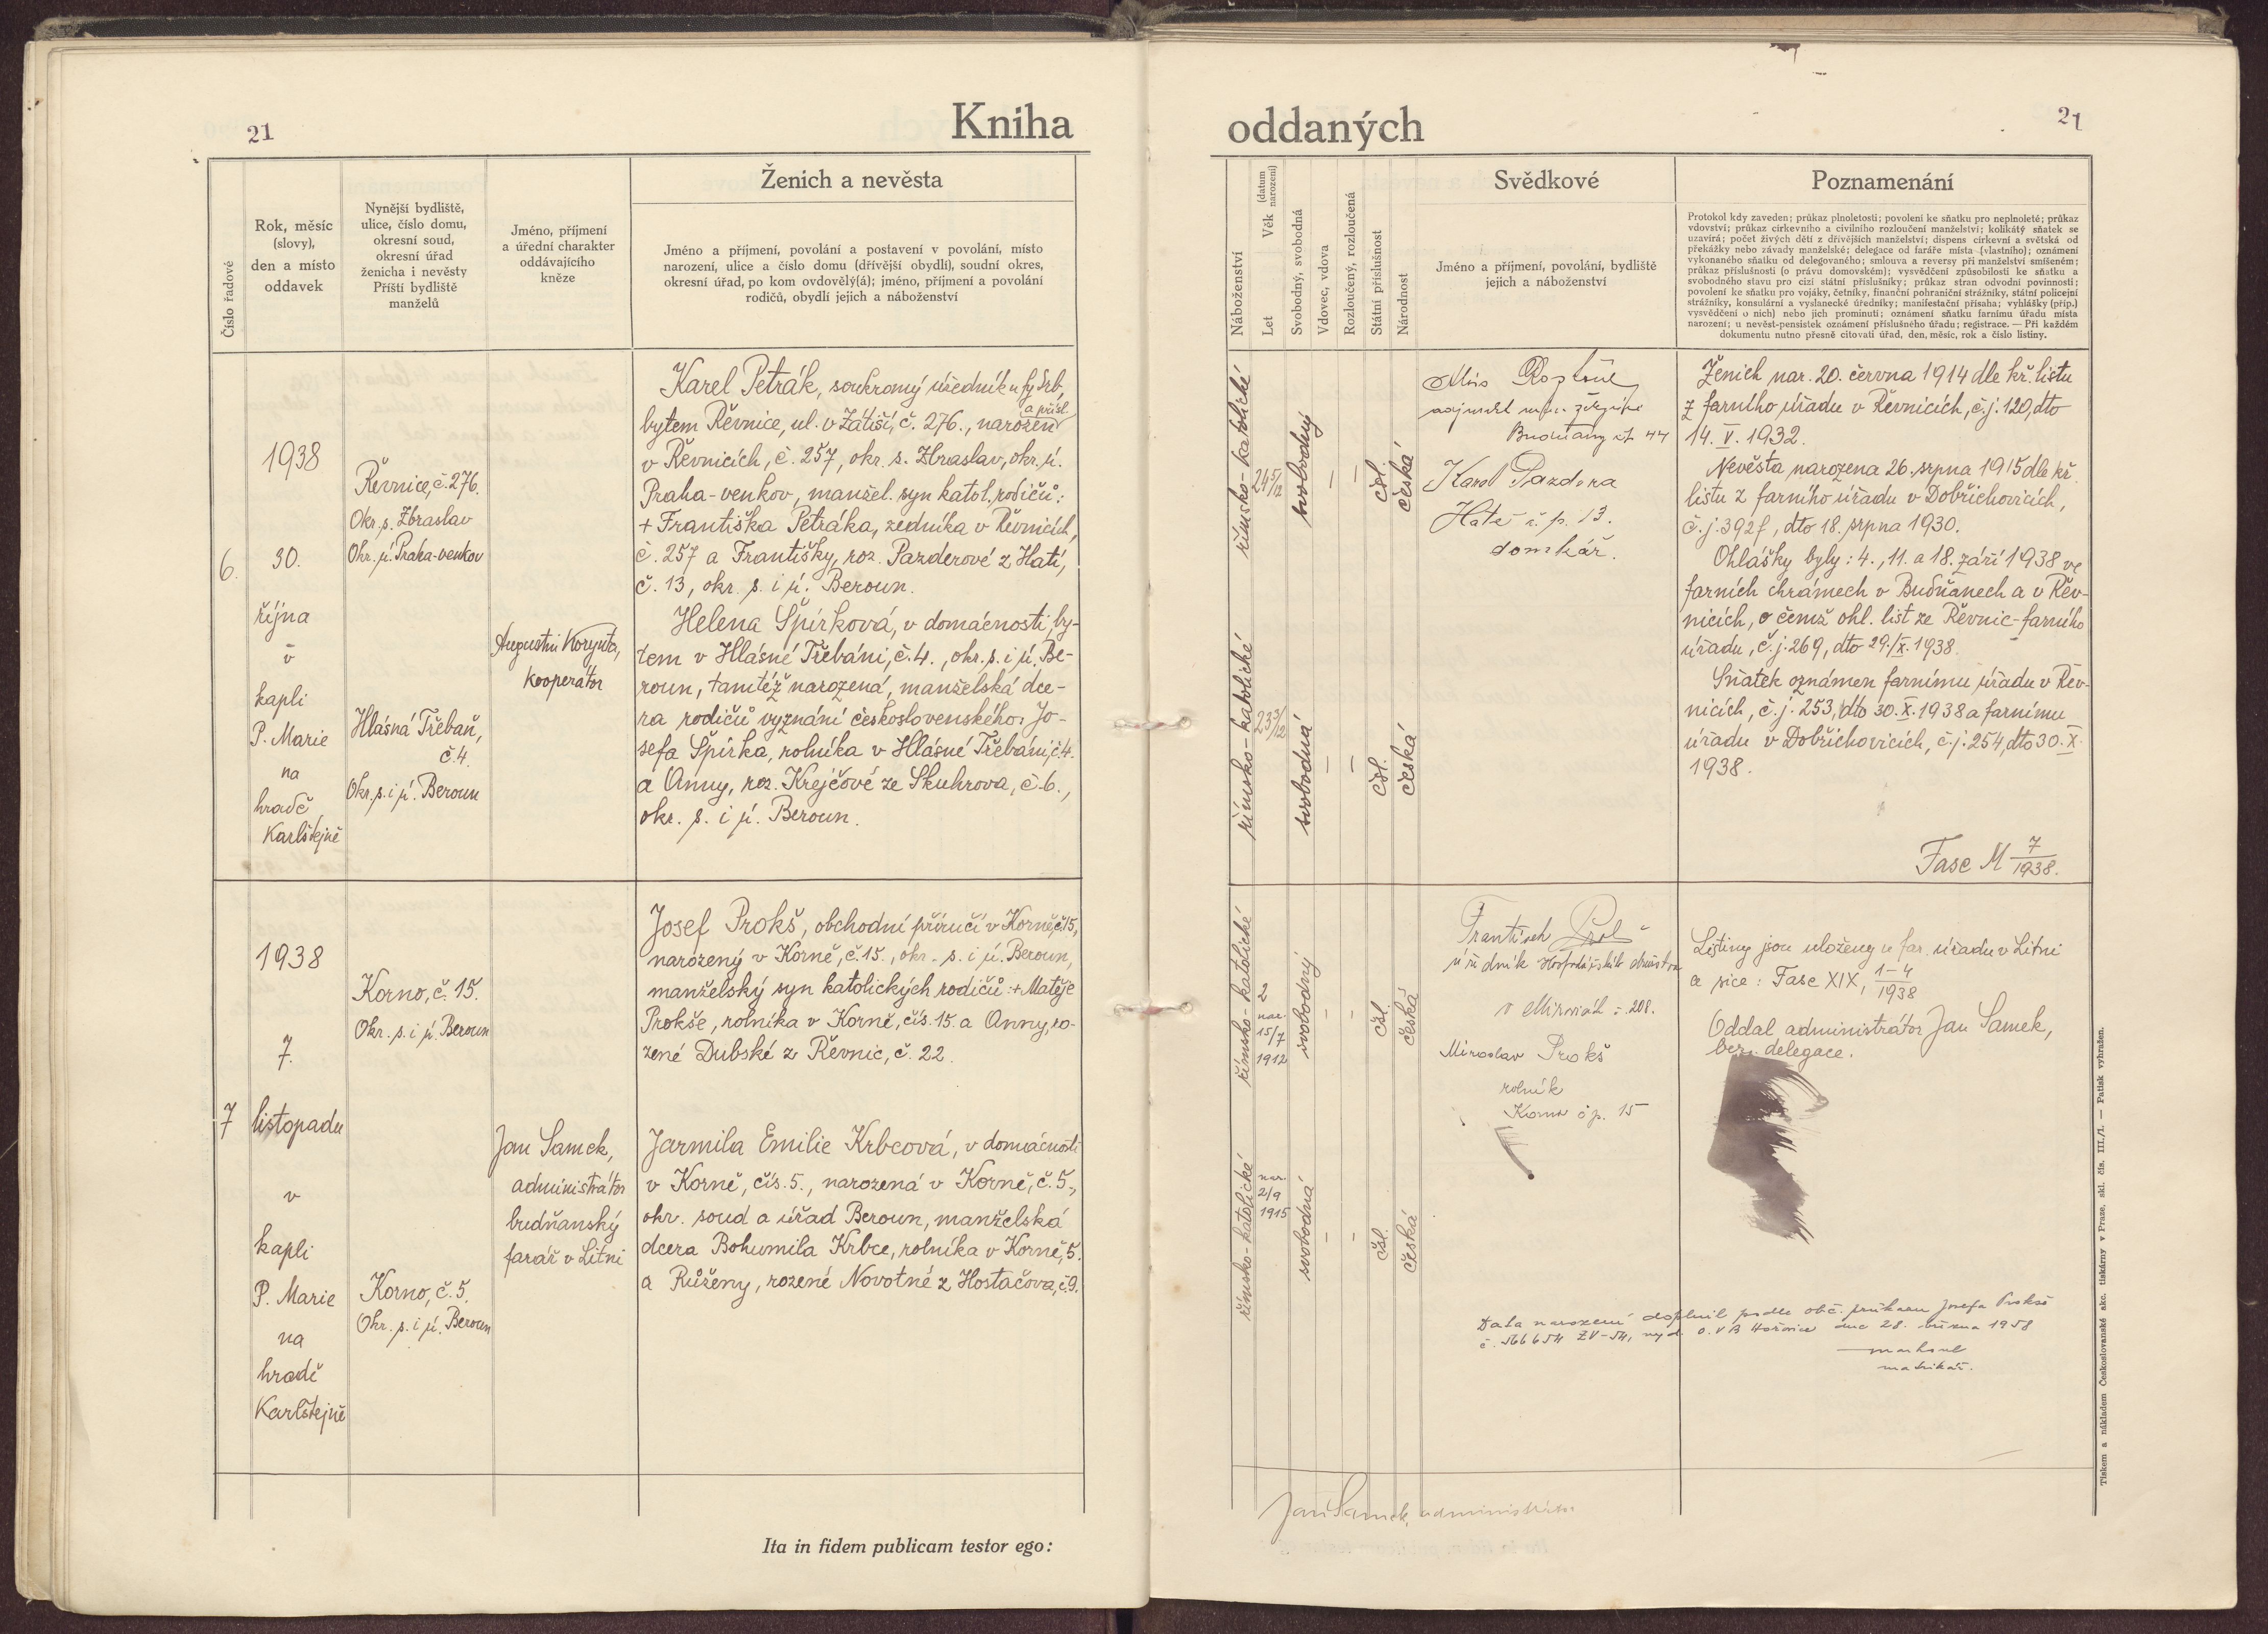 21
Kniha
Číslo řadové
Rok, měsíc
(slovy),
den a místo
oddavek
Nynější bydliště,
ulice, číslo domu,
okresní soud,
okresní úřad
ženicha i nevěsty
Příští bydliště
manželů
Jméno, příjmení
a úřední charakter
oddávajícího
kněze
Ženich a nevěsta
Jméno a příjmení, povolání a postavení v povolání, místo
narození, ulice a číslo domu (dřívější obydlí), soudní okres,
okresní úřad, po kom ovdovělý(á); jméno, příjmení a povolání
rodičů, obydlí jejich a náboženství
6.
1938
30.
října
v
kapli
P. Marie
na
hradě
Karlštejně
Řevnice, č. 276.
Okr. s. Zbraslav
Okr. ú. Praha-venkov
Hlásná Třebaň,
č. 4.
Okr. s. i ú. Beroun
Augustin
kooperátor
Karel Petrák, soukromý úředník u fy Srb,
a přísl.
bytem Řevnice, ul. v Zátiší, č. 276., narozen
v Řevnicích, č. 257, okr. s. Zbraslav, okr. ú.
Praha-venkov, manžel. syn katol. rodičů:
+ Františka Petráka, zedníka v Řevnicích,
č. 257 a Františky, roz. Pazderové z Hatí,
č. 13, okr. s. i ú. Beroun.
Helena Špírková, v domácnosti, by-
tem v Hlásné Třebáni, č. 4., okr. s. i ú. Be-
roun, tamtéž narozená, manželská dce-
ra rodičů vyznání československého: Jo-
sefa Špírka, rolníka v Hlásné Třebáni, č. 4.
a Anny, roz. Krejčové ze Skuhrova, č. 6.,
okr. s. i ú. Beroun.
7
1938
7.
listopadu
v
kapli
P. Marie
na
hradě
Karlštejně
Korno, č. 15.
Okr. s. i ú. Beroun
Korno, č. 5.
Okr. s. i ú. Beroun
Jan Samek,
administrátor
budňanský
farář v Litni
Josef Prokš, obchodní příručí v Korně, č. 15,
narozený v Korně, č. 15., okr. s. i ú. Beroun,
manželský syn katolických rodičů: + Matěje
Prokše, rolníka v Korně, čís. 15. a Anny, ro-
zené Dubské z Řevnic, č. 22.
Jarmila Emilie Krbcová, v domácnosti
v Korně, čís. 5., narozená v Korně, č. 5.,
okr. soud a úřad Beroun, manželská
dcera Bohumila Krbce, rolníka v Korně, 5.
a Růženy, rozené Novotné z Hostačova, č. 9.
Ita in fidem publicam testor ego:
oddaných
21
Náboženství
Let
Věk
(datum
narození)
Svobodný, svobodná
Vdovec, vdova
Rozloučený, rozloučená
Státní příslušnost
Národnost
Svědkové
Jméno a příjmení, povolání, bydliště
jejich a náboženství
Poznamenání
Protokol kdy zaveden; průkaz plnoletosti; povolení ke sňatku pro neplnoleté; průkaz
vdovství; průkaz církevního a civilního rozloučení manželství; kolikátý sňatek se
uzavírá; počet živých dětí z dřívějších manželství; dispens církevní a světská od
překážky nebo závady manželské; delegace od faráře místa (vlastního); oznámení
vykonaného sňatku od delegovaného; smlouva a reversy při manželství smíšeném;
průkaz příslušnosti (o právu domovském); vysvědčení způsobilosti ke sňatku a
svobodného stavu pro cizí státní příslušníky; průkaz stran odvodní povinnosti;
povolení ke sňatku pro vojáky, četníky, finanční pohraniční strážníky, státní policejní
strážníky, konsulární a vyslanecké úředníky; manifestační přísaha; vyhlášky (příp.)
vysvědčení o nich) nebo jich prominutí; oznámení sňatku farnímu úřadu místa
narození; u nevěst-pensistek oznámení příslušného úřadu; registrace. — Při každém
dokumentu nutno přesně citovati úřad, den, měsíc, rok a číslo listiny.
římsko-katolické
24 5/12
svobodný
—
—
čsl.
česká
římsko-katolické
23 3/12
svobodná
—
—
čsl.
česká
Karel Pazdera
Hatě č. p. 13.
domkář.
Ženich nar. 20. června 1914 dle kř. listu
z farního úřadu v Řevnicích, č. j. 120, dto
14. V. 1932.
Nevěsta narozena 26. srpna 1915 dle kř.
listu z farního úřadu v Dobřichovicích,
č. j. 392f, dto 18. srpna 1930.
Ohlášky byly: 4., 11. a 18. září 1938 ve
farních chrámech v Budňanech a v Řev-
nicích, o čemž ohl. list ze Řevnic-farního
úřadu, č. j. 269, dto 29./X. 1938.
Sňatek oznámen farnímu úřadu v Řev-
nicích, č. j. 253, dto 30. X. 1938 a farnímu
úřadu v Dobřichovicích, č. j. 254, dto 30. X.
1938.
Fasc M 7/1938.
římsko-katolické
nar.
15/7
1912
svobodný
-
-
čsl.
česká
římsko-katolické
nar.
2/9
1915
svobodná
-
-
čsl.
česká
František
úředník Hospodářského družstva
208.
Miroslav Prokš
rolník
Korno čp. 15
Listiny jsou uloženy u far. úřadu v Litni
a sice: Fasc XIX, 1-4/1938
Oddal administrátor Jan Samek,
bez delegace.
Data narození doplnil podle obč. průkazu Josefa Prokše
dne 28. března 1958
matrikář.
Jan Samek, administrátor
Tiskem a nákladem Československé akc. tiskárny v Praze, skl. čís. III./1. — Patisk vyhražen.